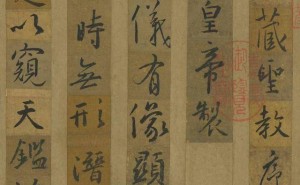 藏聖教序
皇帝製
儀有像顯
時無形潛
以窺天鑑